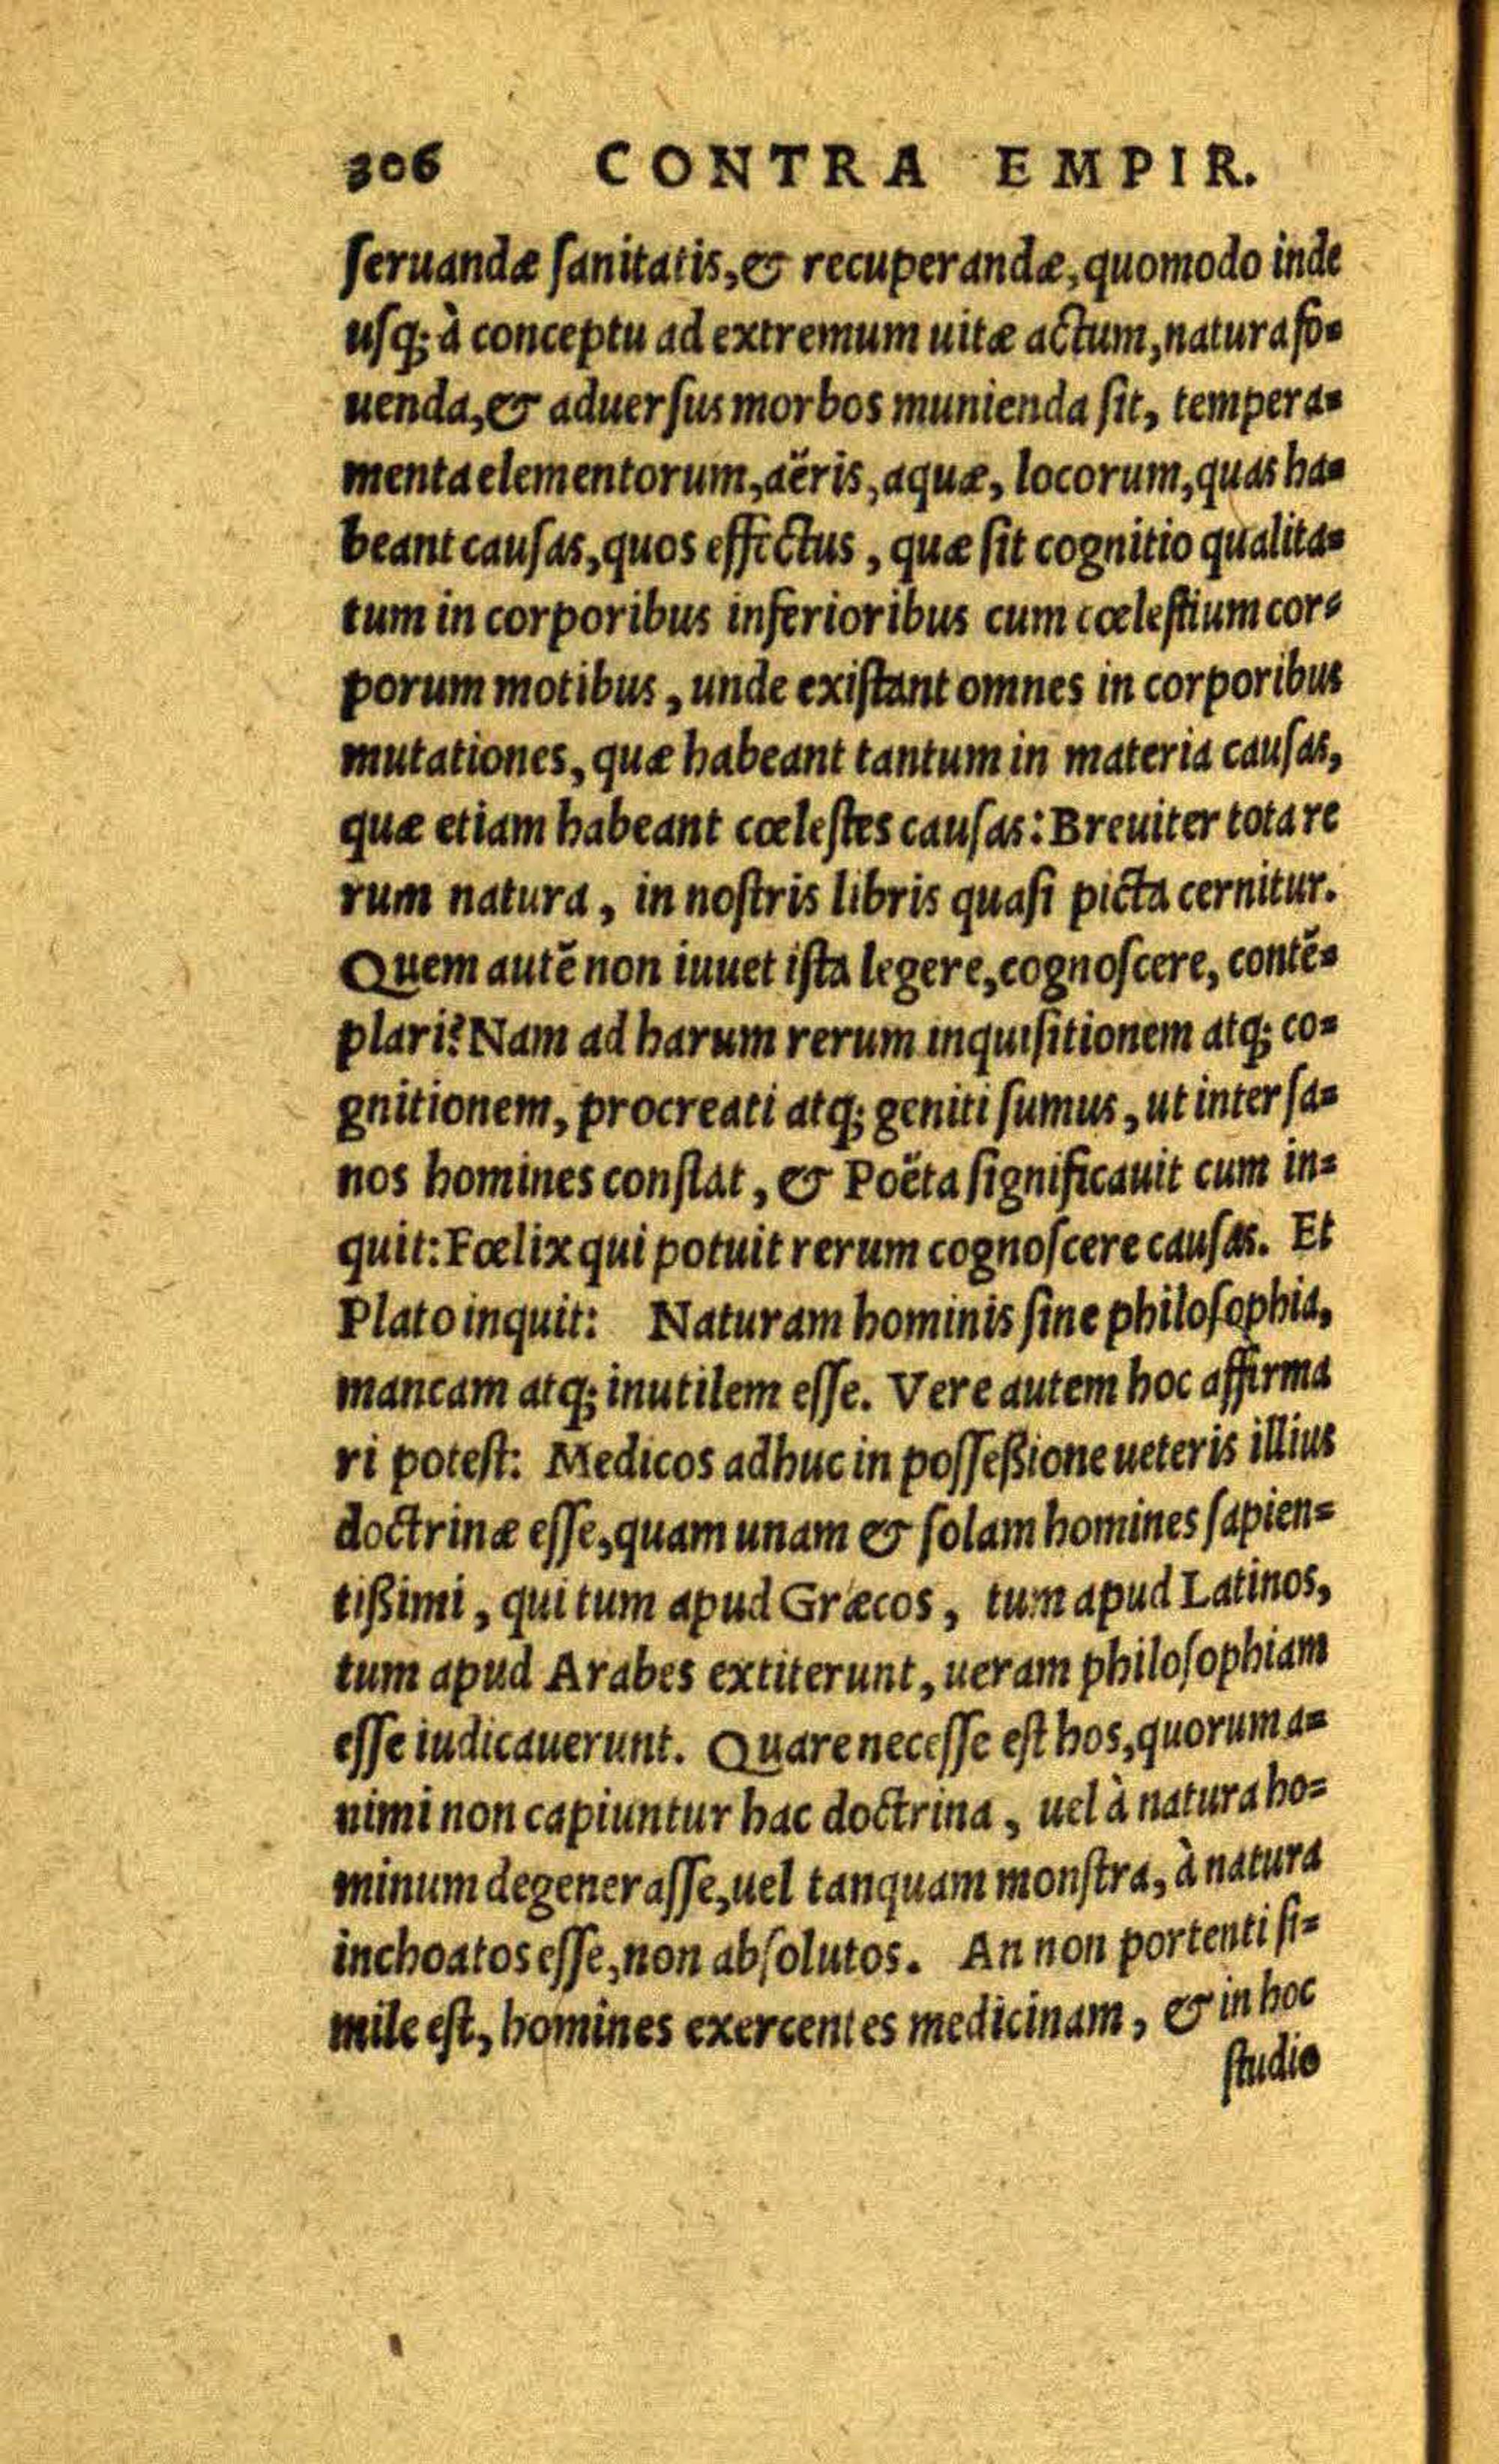 306 CONTRA EMPIR.
ſeruandæ ſanitatis, & recuperandæ, quomodo inde
uſq; à conceptu ad extremum uitæ actum, natura fo-
uenda, & aduerſus morbos munienda ſit, tempera-
menta elementorum, aëris, aquæ, locorum, quas ha-
beant cauſas, quos effectus, quæ ſit cognitio qualita-
tum in corporibus inferioribus cum cœleſtium cor-
porum motibus, unde exiſtant omnes in corporibus
mutationes, quæ habeant tantum in materia cauſas,
quæ etiam habeant cœleſtes cauſas: Breuiter tota re
rum natura, in noſtris libris quaſi picta cernitur.
Quem autē non iuuet iſta legere, cognoſcere, contē-
plari? Nam ad harum rerum inquiſitionem atq; co-
gnitionem, procreati atq; geniti ſumus, ut inter ſa-
nos homines conſtat, & Poëta ſignificauit cum in-
quit: Fœlix qui potuit rerum cognoſcere cauſas. Et
Plato inquit: Naturam hominis ſine philoſophia,
mancam atq; inutilem eſſe. Vere autem hoc affirma
ri poteſt: Medicos adhuc in poſſeßione ueteris illius
doctrinæ eſſe, quam unam & ſolam homines ſapien-
tißimi, qui tum apud Græcos, tum apud Latinos,
tum apud Arabes extiterunt, ueram philoſophiam
eſſe iudicauerunt. Quare neceſſe eſt hos, quorum a-
nimi non capiuntur hac doctrina, uel à natura ho-
minum degeneraſſe, uel tanquam monſtra, à natura
inchoatos eſſe, non abſolutos. An non portenti ſi-
mile eſt, homines exercentes medicinam, & in hoc
ſtudio